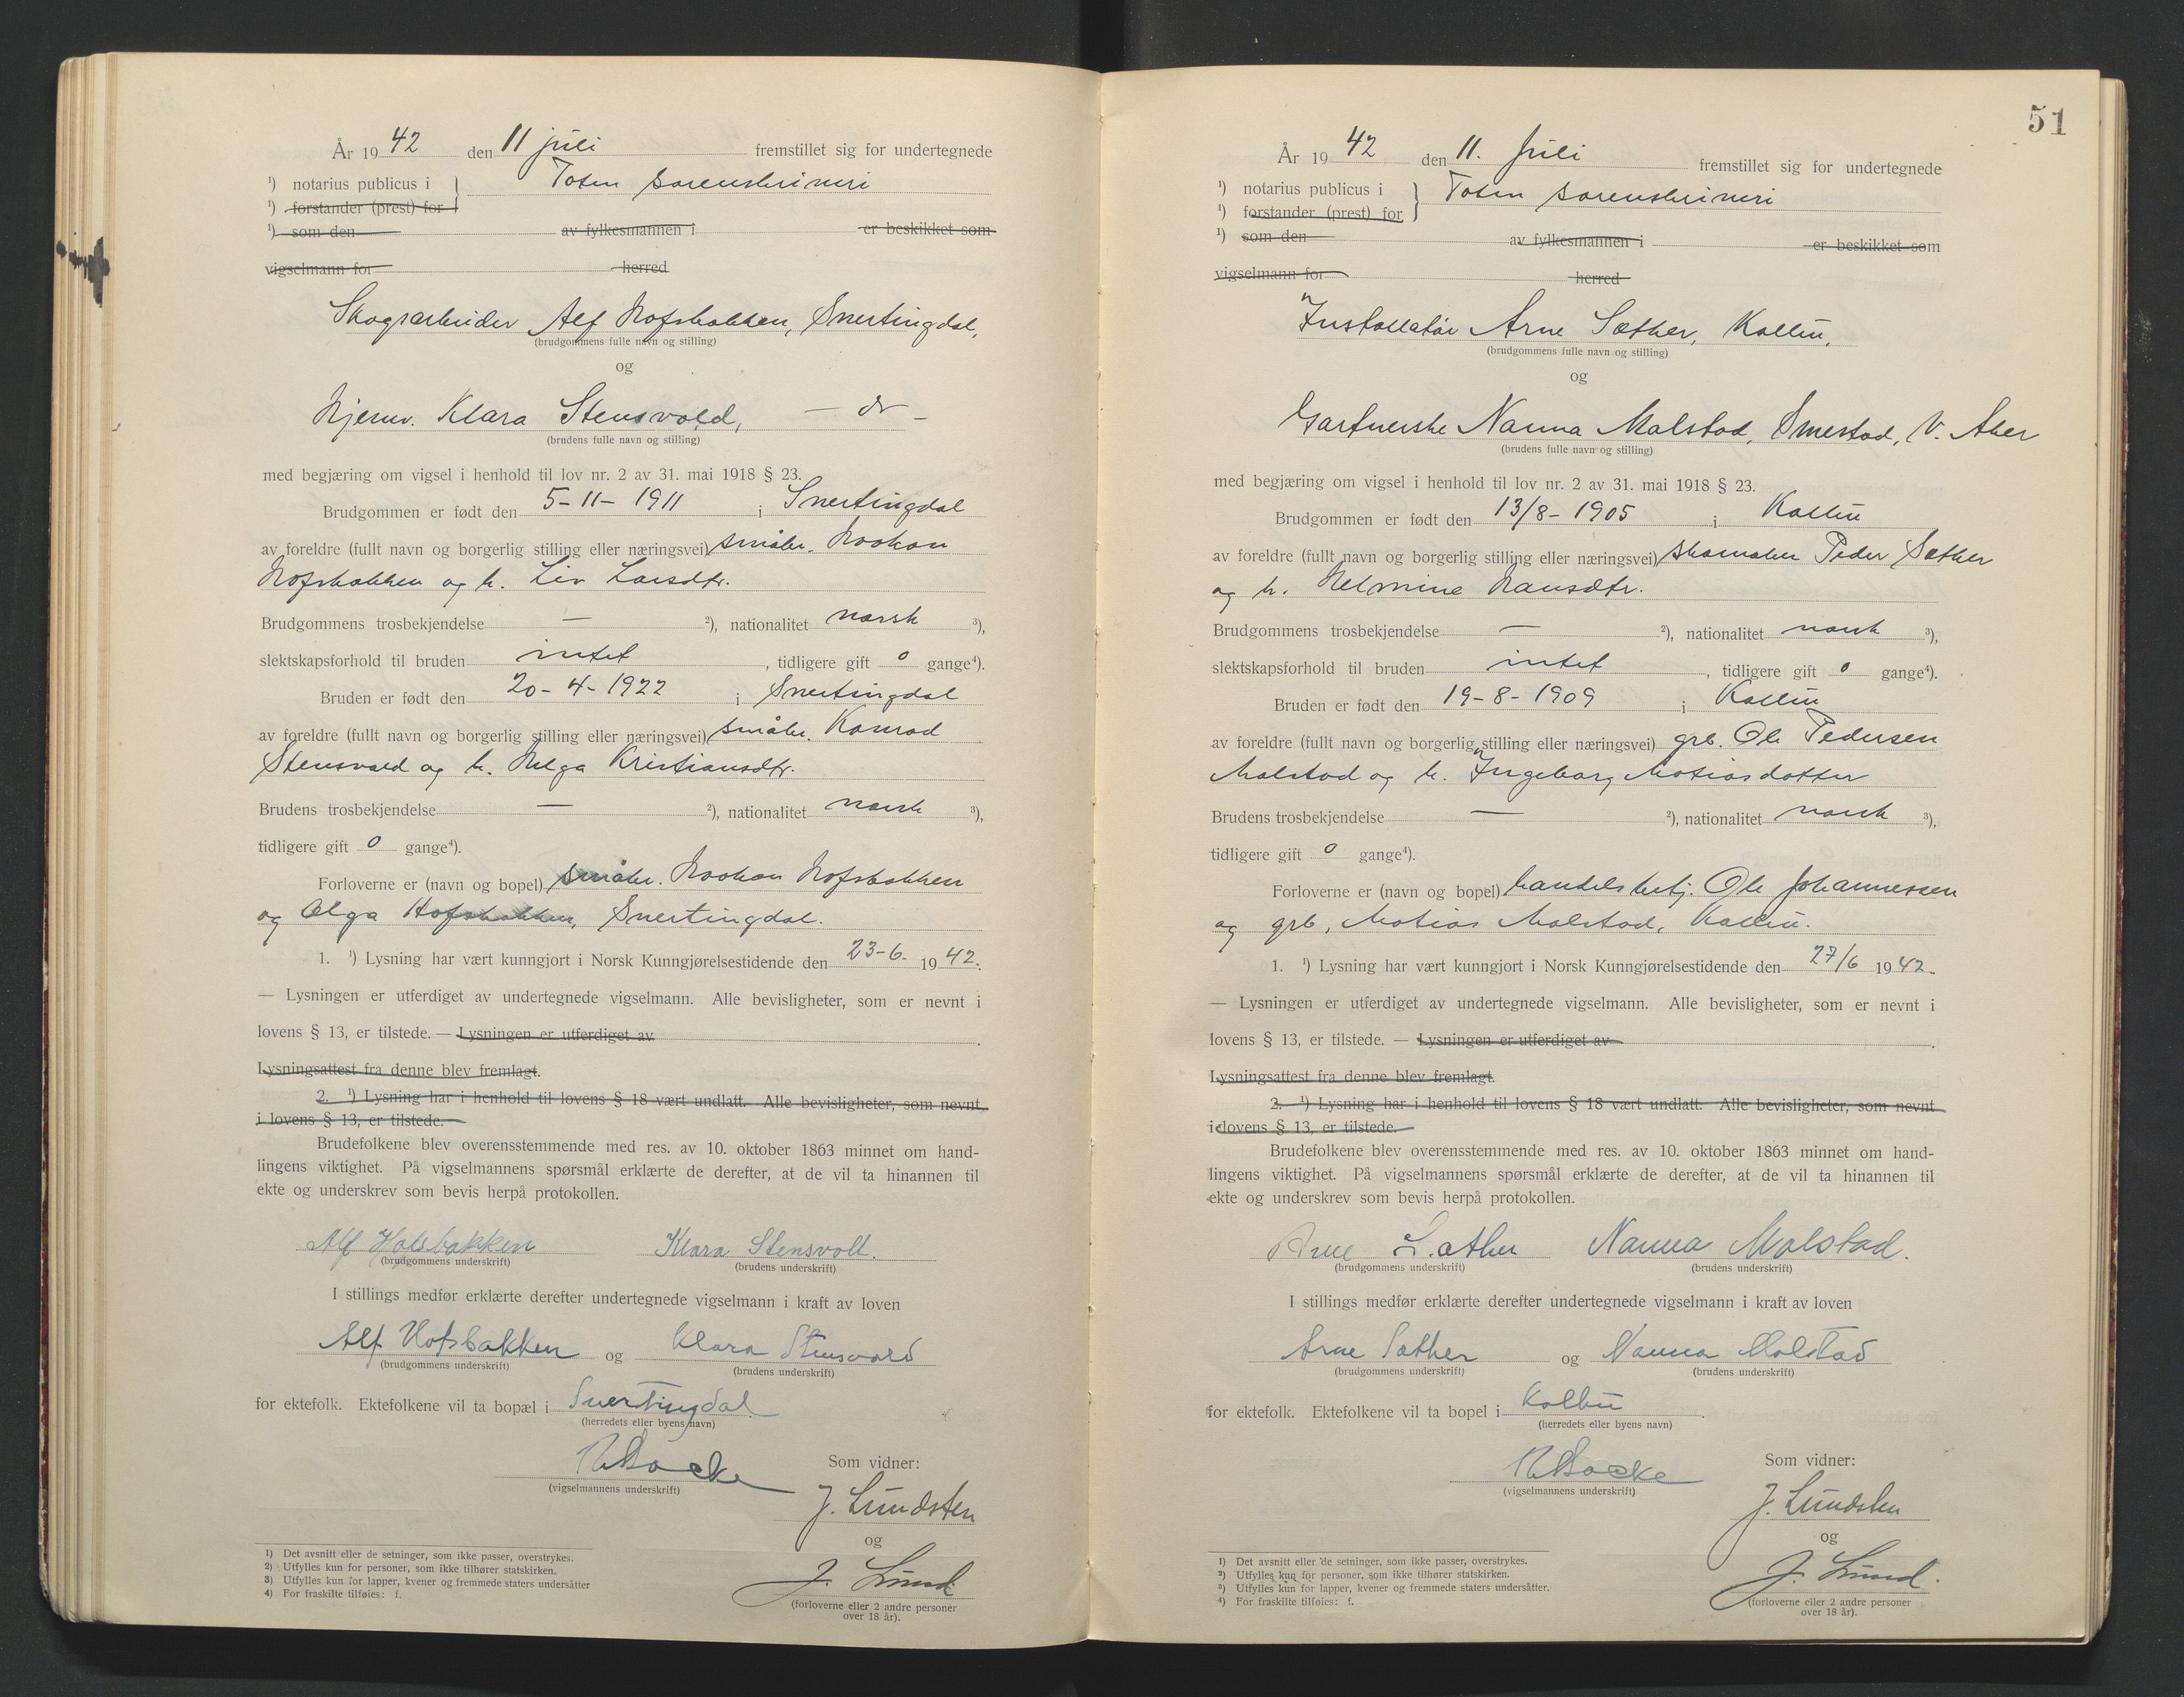 År 1942 den 11 juli fremstillet sig for undertegnede
¹) notarius publicus i } Toten sorenskriveri
¹) forstander (prest) for
¹) som den av fylkesmannen i er beskikket som
vigselmann for herred
Skogsarbeider Alf Hofsbakken, Snertingdal,
(brudgommens fulle navn og stilling)
og
Hjemv. Klara Stensvold, — do —
(brudens fulle navn og stilling)
med begjæring om vigsel i henhold til lov nr. 2 av 31. mai 1918 § 23.
Brudgommen er født den 5-11-1911 i Snertingdal
av foreldre (fullt navn og borgerlig stilling eller næringsvei) småbr. Haakon
Hofsbakken og h. Liv Larsdtr.
Brudgommens trosbekjendelse — ²), nationalitet norsk ³),
slektskapsforhold til bruden intet, tidligere gift 0 gange⁴).
Bruden er født den 20-4-1922 i Snertingdal
av foreldre (fullt navn og borgerlig stilling eller næringsvei) småbr. Konrad
Stensvold og h. Helga Kristiansdtr.
Brudens trosbekjendelse — ²), nationalitet norsk ³),
tidligere gift 0 gange⁴).
Forloverne er (navn og bopel) småbr. Haakon Hofsbakken
og Olga Hofsbakken, Snertingdal.
1. ¹) Lysning har vært kunngjort i Norsk Kunngjørelsestidende den 23-6- 1942.
— Lysningen er utferdiget av undertegnede vigselmann. Alle bevisligheter, som er nevnt i
lovens § 13, er tilstede. — Lysningen er utferdiget av
Lysningsattest fra denne blev fremlagt.
2. ¹) Lysning har i henhold til lovens § 18 vært undlatt. Alle bevisligheter, som nevnt
i lovens § 13, er tilstede.
Brudefolkene blev overensstemmende med res. av 10. oktober 1863 minnet om hand-
lingens viktighet. På vigselmannens spørsmål erklærte de derefter, at de vil ta hinannen til
ekte og underskrev som bevis herpå protokollen.
Alf Hofsbakken Klara Stensvoll.
(brudgommens underskrift) (brudens underskrift)
I stillings medfør erklærte derefter undertegnede vigselmann i kraft av loven
Alf Hofsbakken og Klara Stensvold
(brudgommens underskrift) (brudens underskrift)
for ektefolk. Ektefolkene vil ta bopæl i Snertingdal
(herredets eller byens navn)
(vigselmannens underskrift)
Som vidner:
J. Lundsten
og
J. Lund
(forloverne eller 2 andre personer
over 18 år).
1) Det avsnitt eller de setninger, som ikke passer, overstrykes.
2) Utfylles kun for personer, som ikke tilhører statskirken.
3) Utfylles kun for lapper, kvener og fremmede staters undersåtter
4) For fraskilte tilføies: f.
51
År 1942 den 11. Juli fremstillet sig for undertegnede
¹) notarius publicus i } Toten sorenskriveri
¹) forstander (prest) for
¹) som den av fylkesmannen i er beskikket som
vigselmann for herred
Installatør Arne Sæther, Kolbu,
(brudgommens fulle navn og stilling)
og
Gartnerske Nanna Malstad, Smestad, V. Aker
(brudens fulle navn og stilling)
med begjæring om vigsel i henhold til lov nr. 2 av 31. mai 1918 § 23.
Brudgommen er født den 13/8-1905 i Kolbu
av foreldre (fullt navn og borgerlig stilling eller næringsvei) skomaker Peder Sæther
og h. Helmine Hansdtr.
Brudgommens trosbekjendelse — ²), nationalitet norsk ³),
slektskapsforhold til bruden intet, tidligere gift 0 gange⁴).
Bruden er født den 19-8-1909 i Kolbu
av foreldre (fullt navn og borgerlig stilling eller næringsvei) grb. Ole Pedersen
Malstad og h. Ingeborg Matiasdotter
Brudens trosbekjendelse — ²), nationalitet norsk ³),
tidligere gift 0 gange⁴).
Forloverne er (navn og bopel) handelsbetj. Ole Johannessen
og grb, Matias Malstad, Kolbu.
1. ¹) Lysning har vært kunngjort i Norsk Kunngjørelsestidende den 27/6 1942.
— Lysningen er utferdiget av undertegnede vigselmann. Alle bevisligheter, som er nevnt i
lovens § 13, er tilstede. — Lysningen er utferdiget av
Lysningsattest fra denne blev fremlagt.
2. ¹) Lysning har i henhold til lovens § 18 vært undlatt. Alle bevisligheter, som nevnt
i lovens § 13, er tilstede.
Brudefolkene blev overensstemmende med res. av 10. oktober 1863 minnet om hand-
lingens viktighet. På vigselmannens spørsmål erklærte de derefter, at de vil ta hinannen til
ekte og underskrev som bevis herpå protokollen.
Arne Sæther Nanna Malstad.
(brudgommens underskrift) (brudens underskrift)
I stillings medfør erklærte derefter undertegnede vigselmann i kraft av loven
Arne Sæther og Nanna Malstad
(brudgommens underskrift) (brudens underskrift)
for ektefolk. Ektefolkene vil ta bopel i Kolbu.
(herredets eller byens navn)
(vigselmannens underskrift)
Som vidner:
J. Lundsten
og
J. Lund.
(forloverne eller 2 andre personer
over 18 år).
1) Det avsnitt eller de setninger, som ikke passer, overstrykes.
2) Utfylles kun for personer, som ikke tilhører statskirken.
3) Utfylles kun for lapper, kvener og fremmede staters undersåtter.
4) For fraskilte tilføies: f.